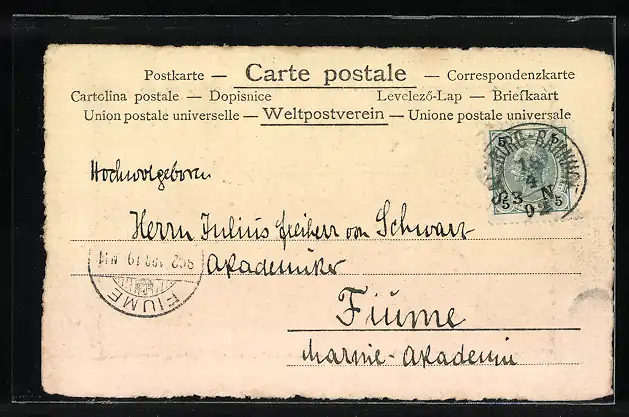 Postkarte — Carte postale — Correspondenzkarte
Cartolina postale — Dopisnice Levelező-Lap — Briefkaart
Union postale universelle — Weltpostverein — Unione postale universale
Hochwolgeboren
Herrn Julius Freiherr von Schwarz
Akademiker
Fiume
Marine-Akademie
FIUME
5 5